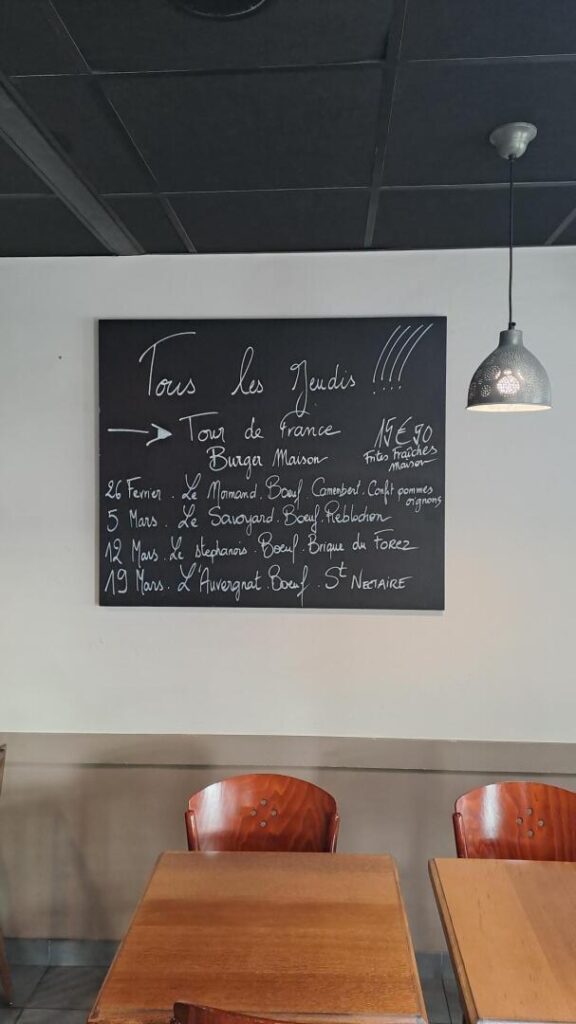 Tous les Jeudis !!!!
Tour de France
15€90
Burger Maison
Frites Fraîches
Maison
26 Fevrier . Le Normand . Boeuf Camembert . Confit pommes
oignons
5 Mars . Le Savoyard . Boeuf . Reblochon
12 Mars . Le stephanois . Boeuf . Brique du Forez
19 Mars . L'Auvergnat . Boeuf . St NECTAIRE